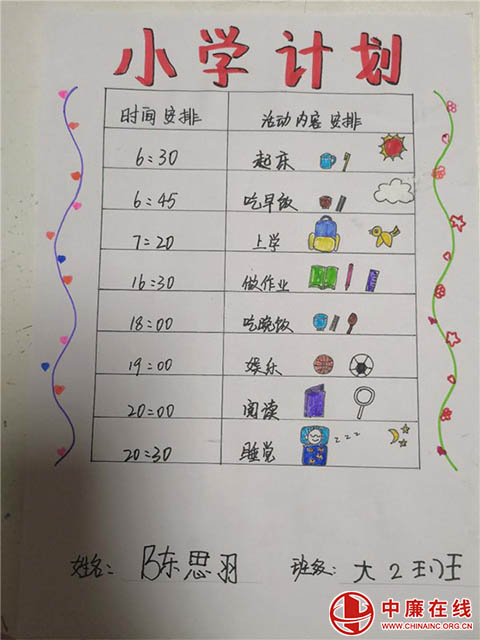 小学计划
时间安排 活动内容安排
6:30 起床
6:45 吃早饭
7:20 上学
16:30 做作业
18:00 吃晚饭
19:00 娱乐
20:00 阅读
20:30 睡觉 zzz
姓名: 陈思羽 班级: 大2班
中廉在线
WWW.CHINAINC.ORG.CN